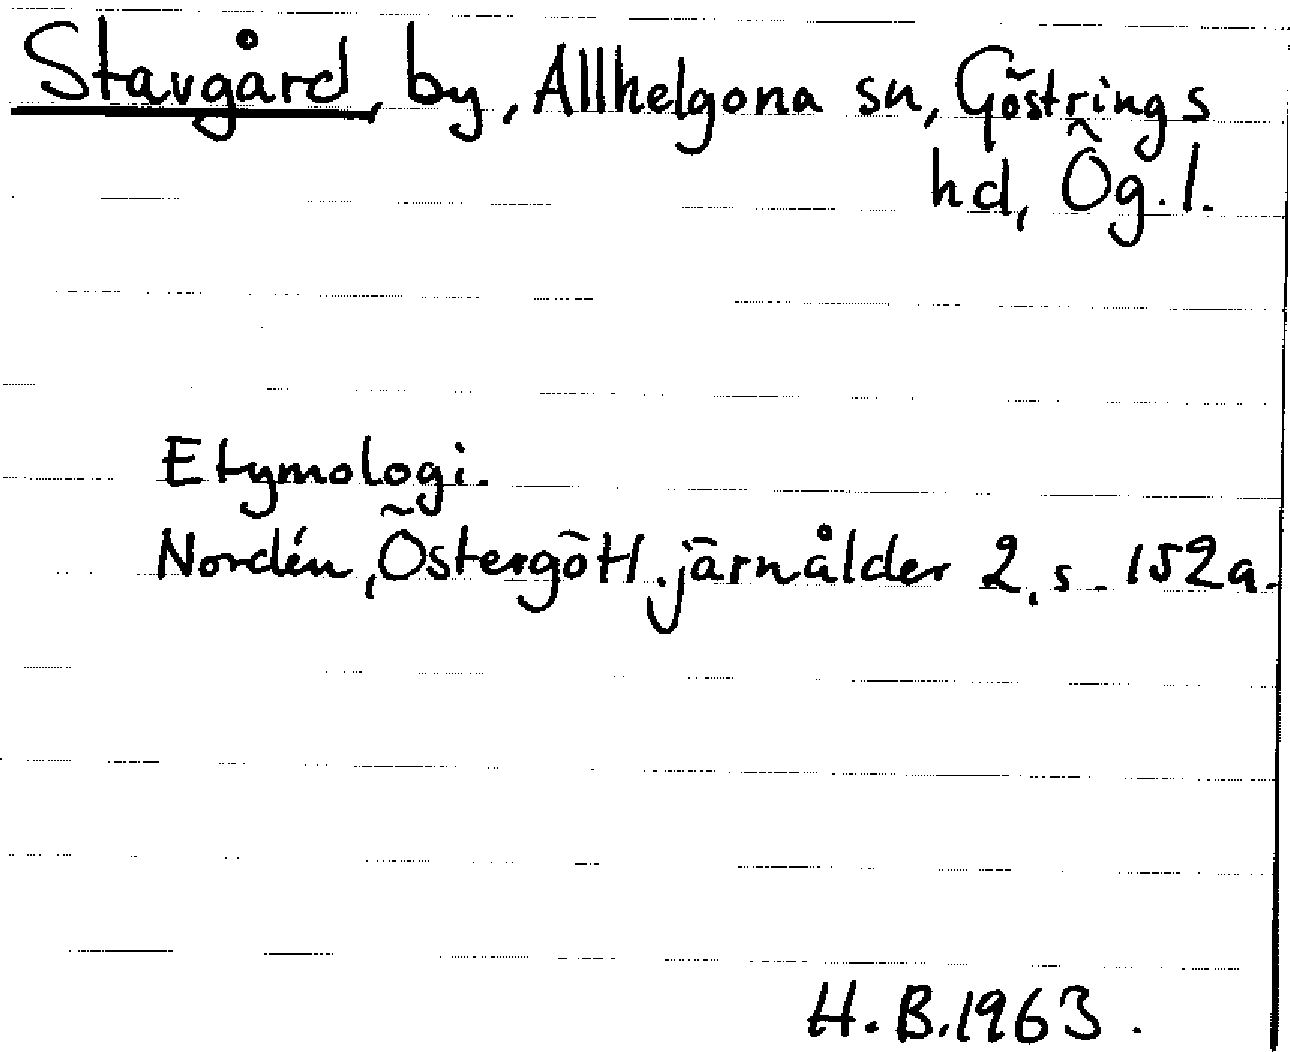 Stavgård, by, Allhelgona sn, Göstrings
hd, Ög. l.
Etymologi.
Nordén, Östergötl. järnålder 2, s. 152a.
H. B. 1963.